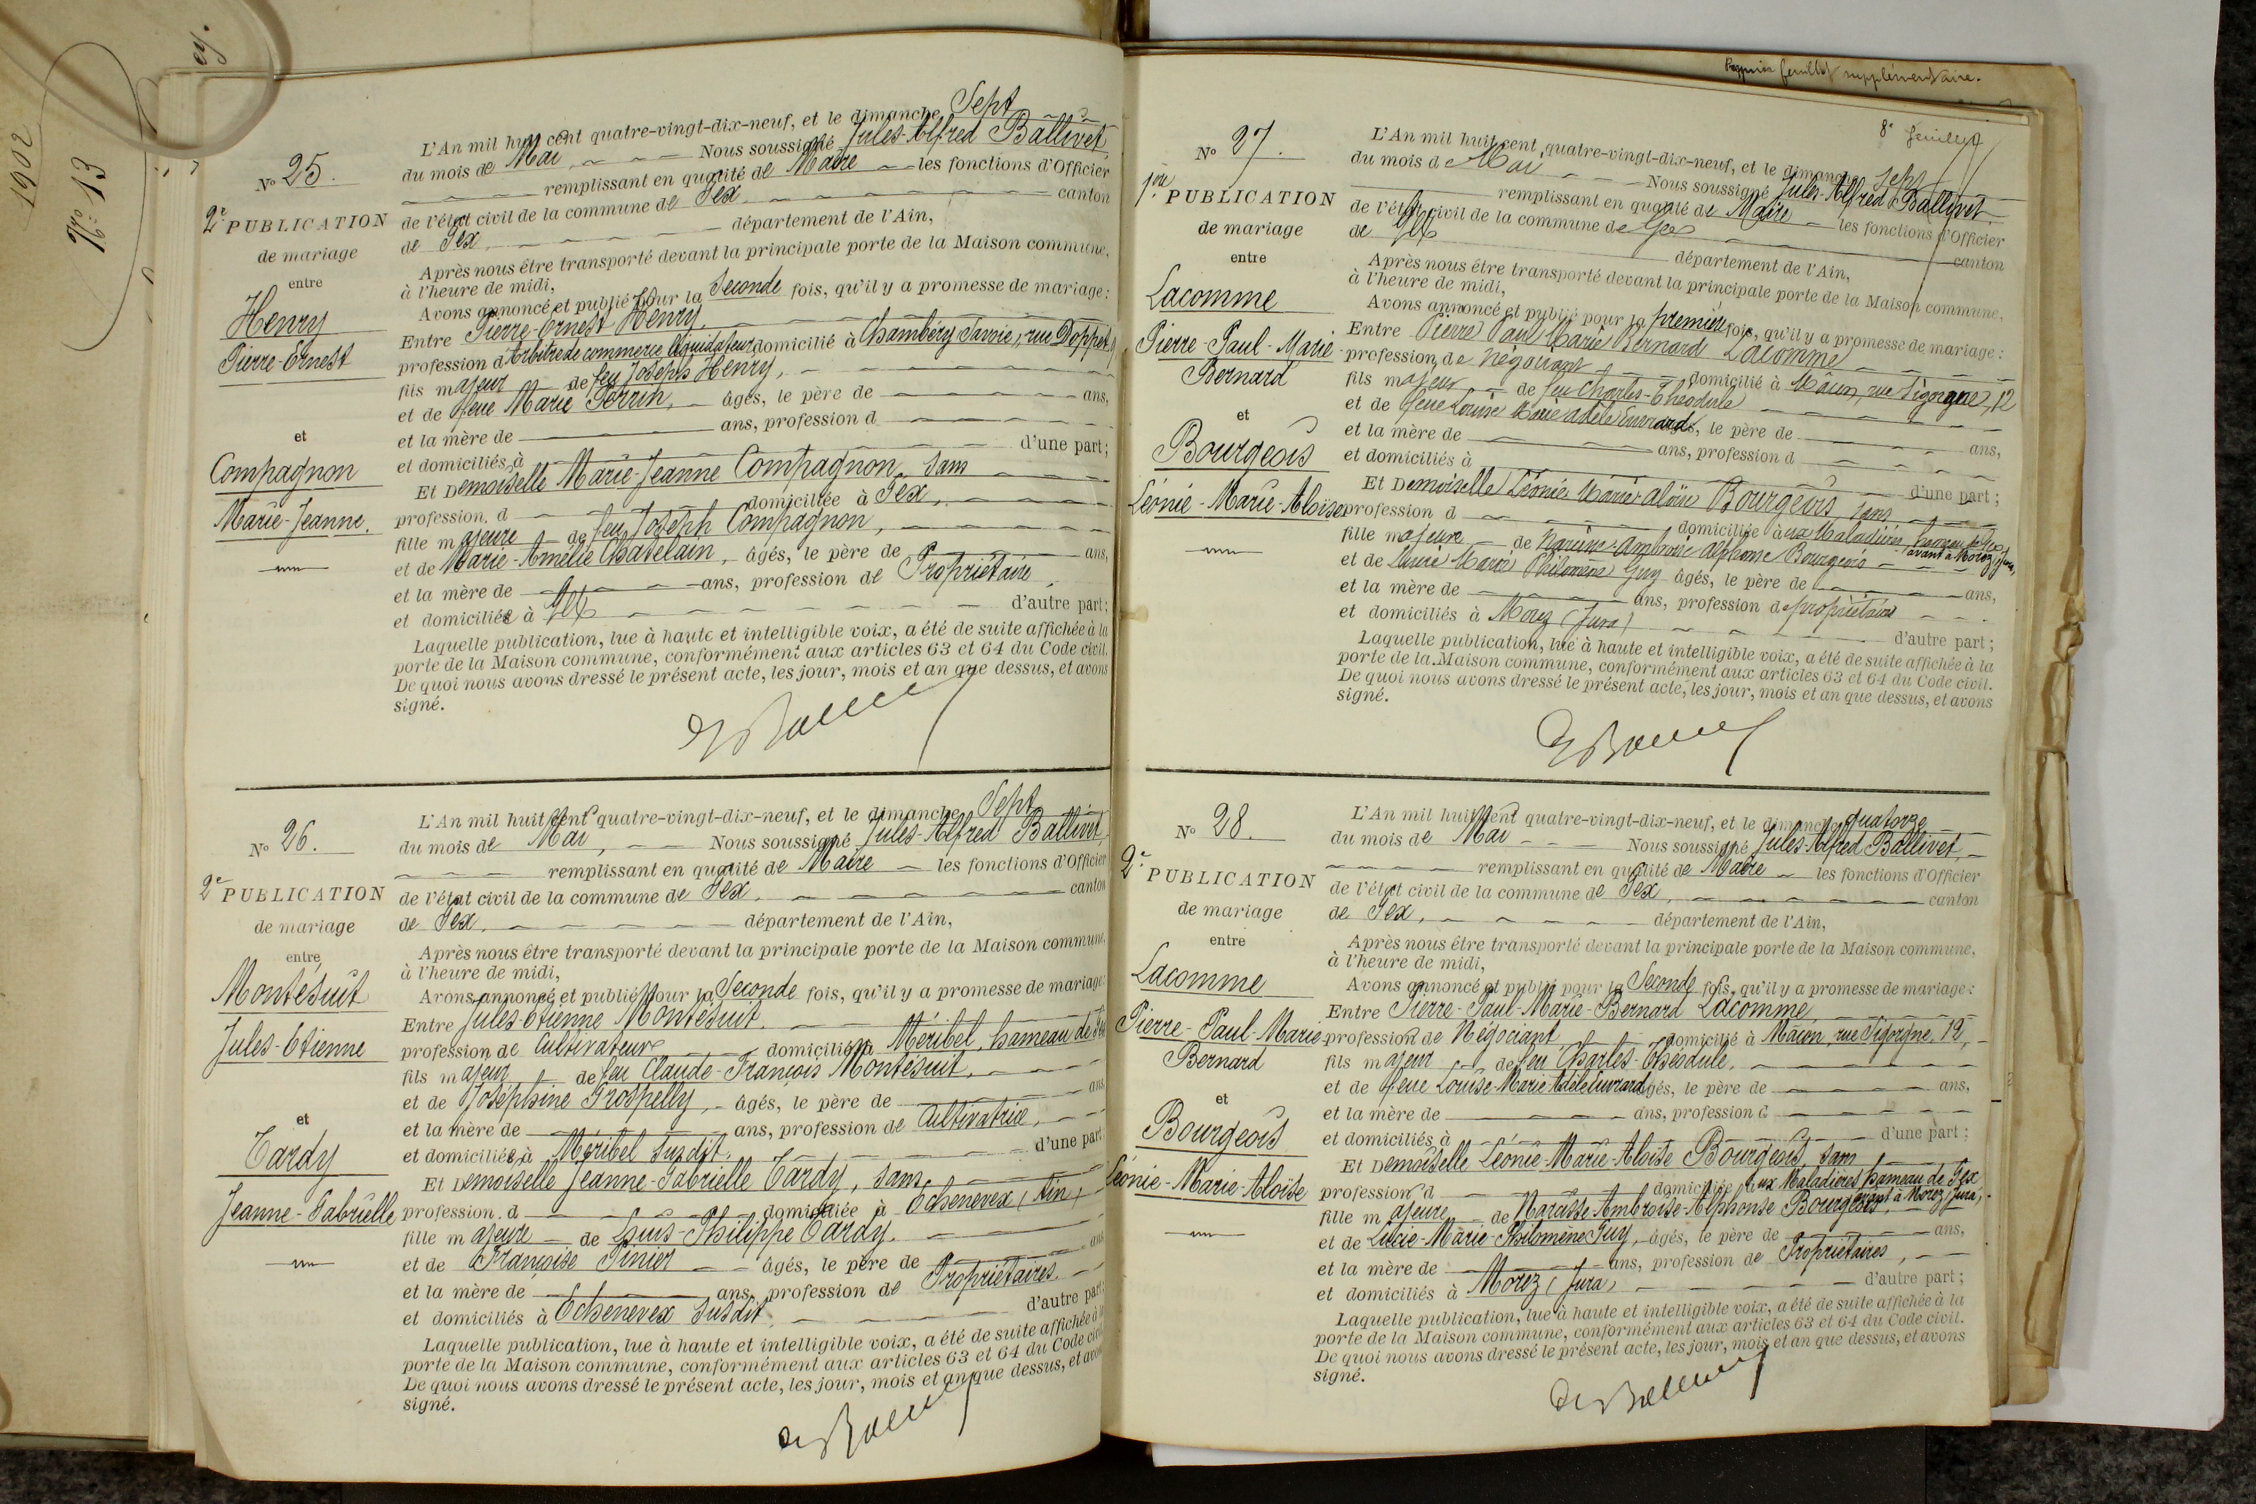 1902
No: 13
ey.
No 25.
2e PUBLICATION
de mariage
entre
Henry
Pierre-Ernest
et
Compagnon
Marie-Jeanne.
L'An mil huit cent quatre-vingt-dix-neuf, et le dimanche Sept
du mois de Mai Nous soussigné Jules-Alfred Ballivet,
remplissant en qualité de Maire les fonctions d'Officier
de l'état civil de la commune de Gex canton
de Gex département de l'Ain,
Après nous être transporté devant la principale porte de la Maison commune,
à l'heure de midi,
Avons annoncé et publié pour la Seconde fois, qu'il y a promesse de mariage:
Entre Pierre-Ernest Henry,
profession d'Arbitre de commerce liquidateur domicilié à Chambéry Savoie, rue Doppet
fils majeur de feu Joseph Henry,
et de feue Marie Perrin, âgés, le père de ans,
et la mère de ans, profession d
et domiciliés à d'une part;
Et Demoiselle Marie-Jeanne Compagnon, sans
profession, d domiciliée à Gex,
fille majeure de feu Joseph Compagnon,
et de Marie-Amélie Chatelain, âgés, le père de ans,
et la mère de ans, profession de Propriétaire,
et domiciliée à Gex d'autre part;
Laquelle publication, lue à haute et intelligible voix, a été de suite affichée à la
porte de la Maison commune, conformément aux articles 63 et 64 du Code civil.
De quoi nous avons dressé le présent acte, les jour, mois et an que dessus, et avons
signé.
No 26.
2e PUBLICATION
de mariage
entre
Montésuit
Jules-Etienne
et
Tardy
Jeanne-Gabrielle
L'An mil huit cent quatre-vingt-dix-neuf, et le dimanche Sept
du mois de Mai, Nous soussigné Jules-Alfred Ballivet,
remplissant en qualité de Maire les fonctions d'Officier
de l'état civil de la commune de Gex. canton
de Gex. département de l'Ain,
Après nous être transporté devant la principale porte de la Maison commune,
à l'heure de midi,
Avons annoncé et publié pour la Seconde fois, qu'il y a promesse de mariage:
Entre Jules-Etienne Montésuit.
profession de Cultivateur domicilié à Méribel, hameau de Gex
fils majeur de feu Claude-François Montésuit,
et de Joséphine Grospelly, âgés, le père de ans,
et la mère de ans, profession de Cultivatrice,
et domiciliée à Méribel susdit. d'une part
Et Demoiselle Jeanne-Gabrielle Tardy, sans
profession, d domiciliée à Echenevex (Ain)
fille majeure de Louis-Philippe Tardy.
et de Françoise Pinier âgés, le père de ans
et la mère de ans, profession de Propriétaires
et domiciliés à Echenevex susdit d'autre part;
Laquelle publication, lue à haute et intelligible voix, a été de suite affichée à la
porte de la Maison commune, conformément aux articles 63 et 64 du Code civil
De quoi nous avons dressé le présent acte, les jour, mois et an que dessus, et avons
signé.
Premier feuillet supplémentaire.
8e feuillet
No 27.
1ère PUBLICATION
de mariage
entre
Lacomme
Pierre-Paul-Marie
Bernard
et
Bourgeois
Léonie-Marie-Aloïse
L'An mil huit cent quatre-vingt-dix-neuf, et le dimanche sept
du mois de Mai Nous soussigné Jules-Alfred Ballivet
remplissant en qualité de Maire les fonctions d'Officier
de l'état civil de la commune de Gex canton
de Gex département de l'Ain,
Après nous être transporté devant la principale porte de la Maison commune,
à l'heure de midi,
Avons annoncé et publié pour la première fois, qu'il y a promesse de mariage:
Entre Pierre Paul Marie Bernard Lacomme
profession de négociant domicilié à Mâcon, rue Sigorgne, 12
fils majeur de feu Charles-Théodule
et de feue Louise Marie Adèle Euvrard âgés, le père de ans,
et la mère de ans, profession d
et domiciliés à d'une part;
Et Demoiselle Léonie Marie Aloïse Bourgeois, sans
profession d domiciliée aux Maladières, hameau de Gex,
avant à Morez, Jura,
fille majeure de Narcisse Ambroise Alphonse Bourgeois
et de Lucie Marie Philomène Guy âgés, le père de ans,
et la mère de ans, profession de propriétaires
et domiciliés à Morez (Jura) d'autre part;
Laquelle publication, lue à haute et intelligible voix, a été de suite affichée à la
porte de la Maison commune, conformément aux articles 63 et 64 du Code civil.
De quoi nous avons dressé le présent acte, les jour, mois et an que dessus, et avons
signé.
No 28.
2e PUBLICATION
de mariage
entre
Lacomme
Pierre-Paul-Marie
Bernard
et
Bourgeois
Léonie-Marie-Aloïse
L'An mil huit cent quatre-vingt-dix-neuf, et le dimanche quatorze
du mois de Mai Nous soussigné Jules-Alfred Ballivet,
remplissant en qualité de Maire les fonctions d'Officier
de l'état civil de la commune de Gex, canton
de Gex, département de l'Ain,
Après nous être transporté devant la principale porte de la Maison commune,
à l'heure de midi,
Avons annoncé et publié pour la Seconde fois, qu'il y a promesse de mariage:
Entre Pierre-Paul-Marie-Bernard Lacomme
profession de Négociant, domicilié à Mâcon, rue Sigorgne, 12,
fils majeur de feu Charles-Théodule,
et de feue Louise-Marie-Adèle Euvrard âgés, le père de ans,
et la mère de ans, profession d
et domiciliés à d'une part;
Et Demoiselle Léonie-Marie-Aloïse Bourgeois, sans
profession d domiciliée aux Maladières hameau de Gex
avant à Morez, Jura,
fille majeure de Narcisse Ambroise-Alphonse Bourgeois,
et de Lucie-Marie-Philomène Guy, âgés, le père de ans,
et la mère de ans, profession de Propriétaires,
et domiciliés à Morez (Jura) d'autre part;
Laquelle publication, lue à haute et intelligible voix, a été de suite affichée à la
porte de la Maison commune, conformément aux articles 63 et 64 du Code civil.
De quoi nous avons dressé le présent acte, les jour, mois et an que dessus, et avons
signé.